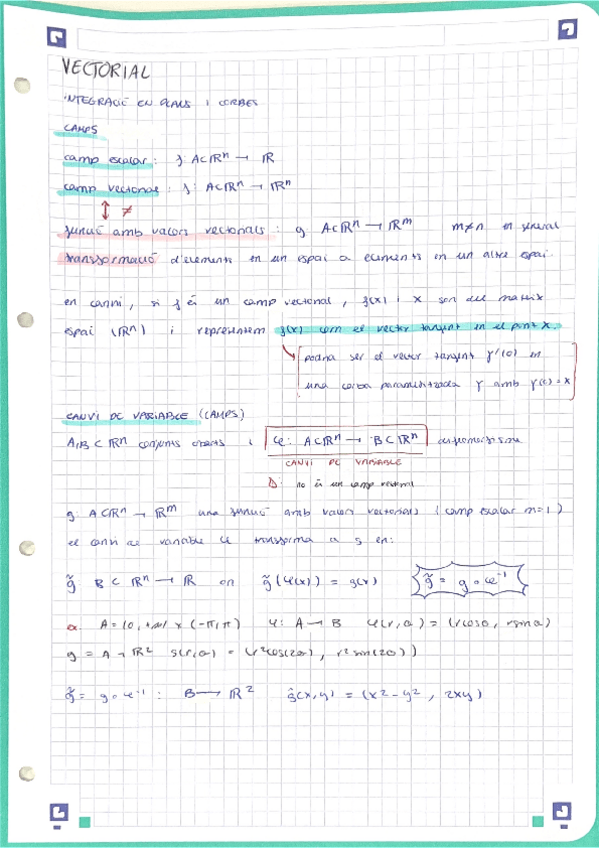 VECTORIAL
INTEGRACIÓ EN PLANS I CORBES
CAMPS
camp escalar: f: A⊂ℝⁿ → ℝ
camp vectorial: f: A⊂ℝⁿ → ℝⁿ
↕ ≠
funció amb valors vectorials: g A⊂ℝⁿ → ℝᵐ m≠n en general
transformació d'elements en un espai a elements en un altre espai.
en canvi, si f és un camp vectorial, f(x) i x son del mateix
espai (ℝⁿ) i representem f(x) com el vector tangent en el punt x.
podria ser el vector tangent γ'(0) en
una corba parametritzada γ amb γ(0) = x
CANVI DE VARIABLE (CAMPS)
A,B ⊂ ℝⁿ conjunts oberts i φ: A⊂ℝⁿ → B⊂ℝⁿ difeomorfisme
CANVI DE VARIABLE
no és un camp vectorial
g: A⊂ℝⁿ → ℝᵐ una funció amb valors vectorials (camp escalar m=1)
el canvi de variable φ transforma a g en:
g̃ B⊂ ℝⁿ → ℝ on g̃(φ(x)) = g(x) g̃ = g∘φ⁻¹
ex. A = (0, +∞) × (-π, π) φ: A → B φ(r,θ) = (rcosθ, rsinθ)
g = A → ℝ² g(r,θ) = (r²cos(2θ), r²sin(2θ))
g̃ = g∘φ⁻¹: B → ℝ² g̃(x,y) = (x²-y², 2xy)